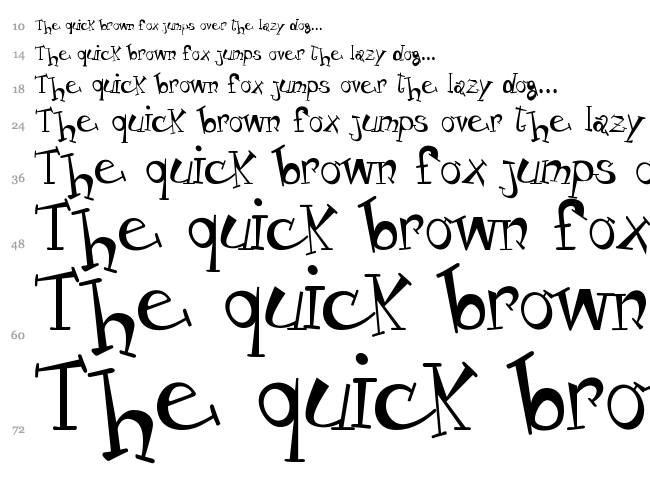 10 The quick brown fox jumps over the lazy dog...
14 The quick brown fox jumps over the lazy dog...
18 The quick brown fox jumps over the lazy dog...
24 The quick brown fox jumps over the lazy
36 The quick brown fox jumps o
48 The quick brown fox
60 The quick brown
72 The quick bro